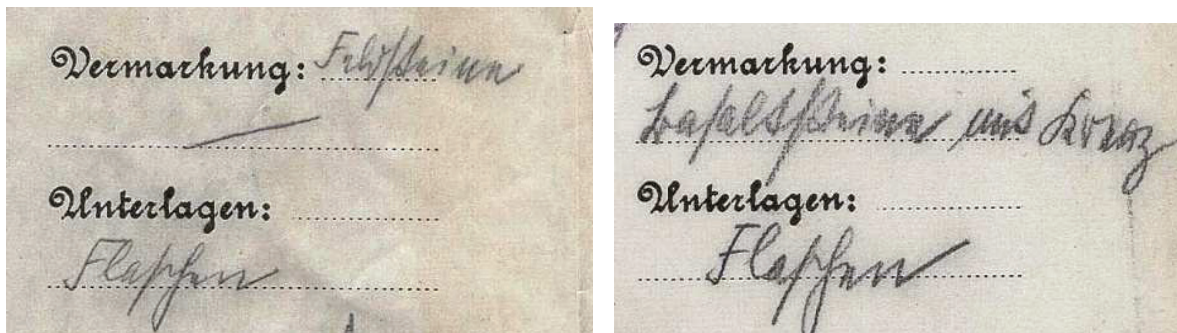 Vermarkung: Feldsteine
Unterlagen:
Flaschen
Vermarkung:
Basaltsteine mit Kreuz
Unterlagen:
Flaschen